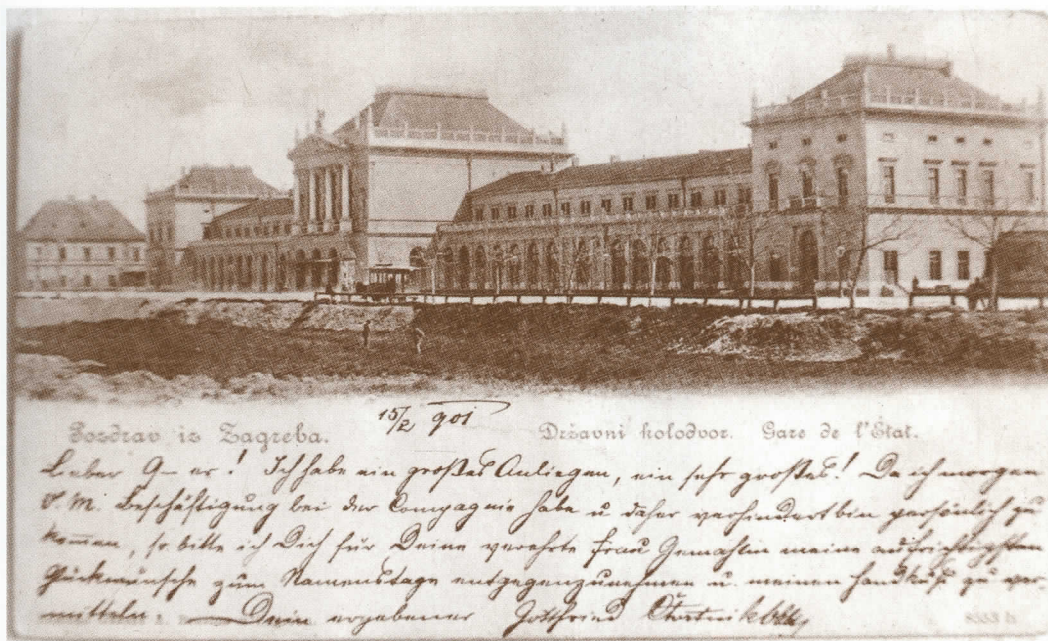 15/2 901
Pozdrav iz Zagreba. Državni kolodvor. Gare de l'État.
Lieber G–er! Ich habe ein großes Anliegen, ein sehr großes! Da ich morgen
V. M. Beschäftigung bei der Compagnie habe u. daher verhindert bin persönlich zu
kommen, so bitte ich Dich für Deine verehrte Frau Gemahlin meine aufrichtigsten
Glückwünsche zum Namenstage entgegenzunehmen u. meinen Handkuß zu ver-
mitteln. — Dein ergebener Gottfried